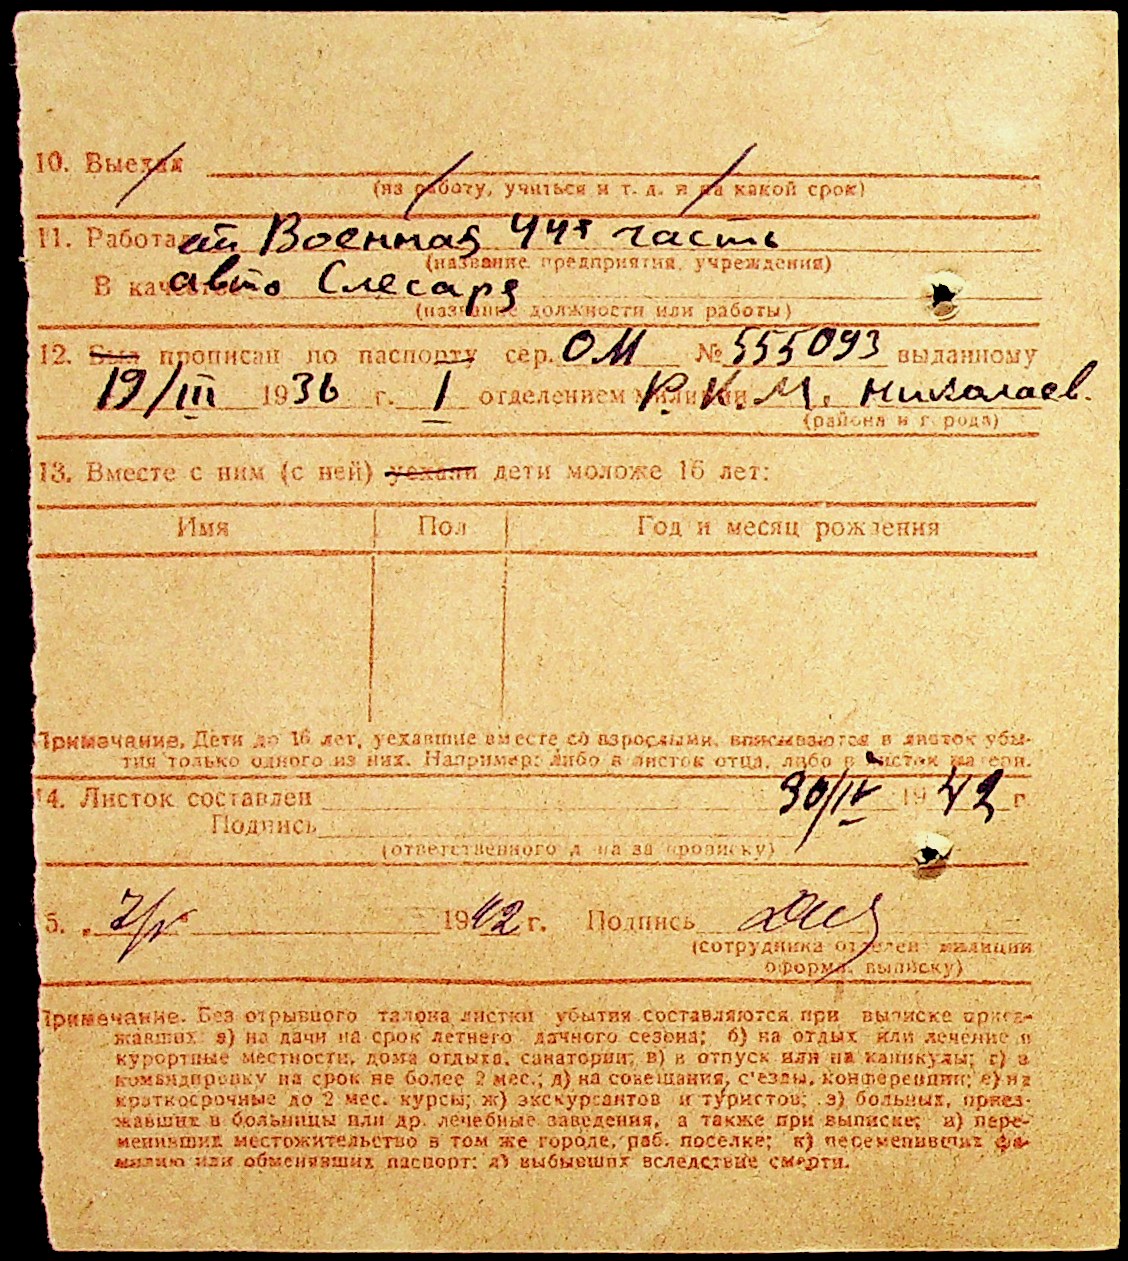 10. Выехал
(на работу, учиться и т. д. и на какой срок)
11. Работа Военная 44я часть
(название предприятия, учреждения)
В качестве авто Слесаря
(название должности или работы)
12. Был прописан по паспорту сер. ОМ № 555093 выданному
19/III 1936 г. I отделением милиции Р.К.М. Николаев.
(района и города)
13. Вместе с ним (с ней) уехали дети моложе 16 лет:
Имя Пол Год и месяц рождения
Примечание. Дети до 16 лет, уехавшие вместе со взрослыми, вписываются в листок убы-
тия только одного из них. Например: либо в листок отца, либо в листок матери.
14. Листок составлен 30/IV 1942 г.
Подпись
(ответственного за прописку)
5. 7/V 1942 г. Подпись
(сотрудника отделен. милиции
оформ. выписку)
Примечание. Без отрывного талона листки убытия составляются при выписке приез-
жавших: а) на дачи на срок летнего дачного сезона; б) на отдых или лечение в
курортные местности, дома отдыха, санатории; в) в отпуск или на каникулы; г) в
командировку на срок не более 2 мес.; д) на совещания, с'езды, конференции; е) на
краткосрочные до 2 мес. курсы; ж) экскурсантов и туристов; з) больных, приез-
жавших в больницы или др. лечебные заведения, а также при выписке; и) пере-
менивших местожительство в том же городе, раб. поселке; к) переменивших фа-
милию или обменявших паспорт; л) выбывших вследствие смерти.